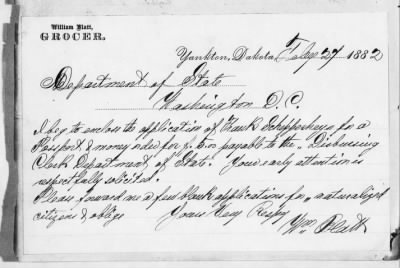 William Blatt,
GROCER.
Yankton, Dakota, Feby 27 1882
Department of State
Washington D.C.
I beg to enclose the application of Frank for a
Passport & money order for payable to the "Disbursing
Clerk Department of State. Your early attention is
respectfully solicited.
Please forward me a few blank applications for naturalized
citizens & oblige Yours Very Respy
Wm Blatt